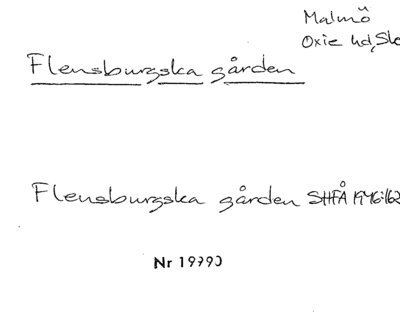 Malmö
Oxie hd, Sk
Flensburgska gården
Flensburgska gården SHFÅ 1946:162
Nr 19990